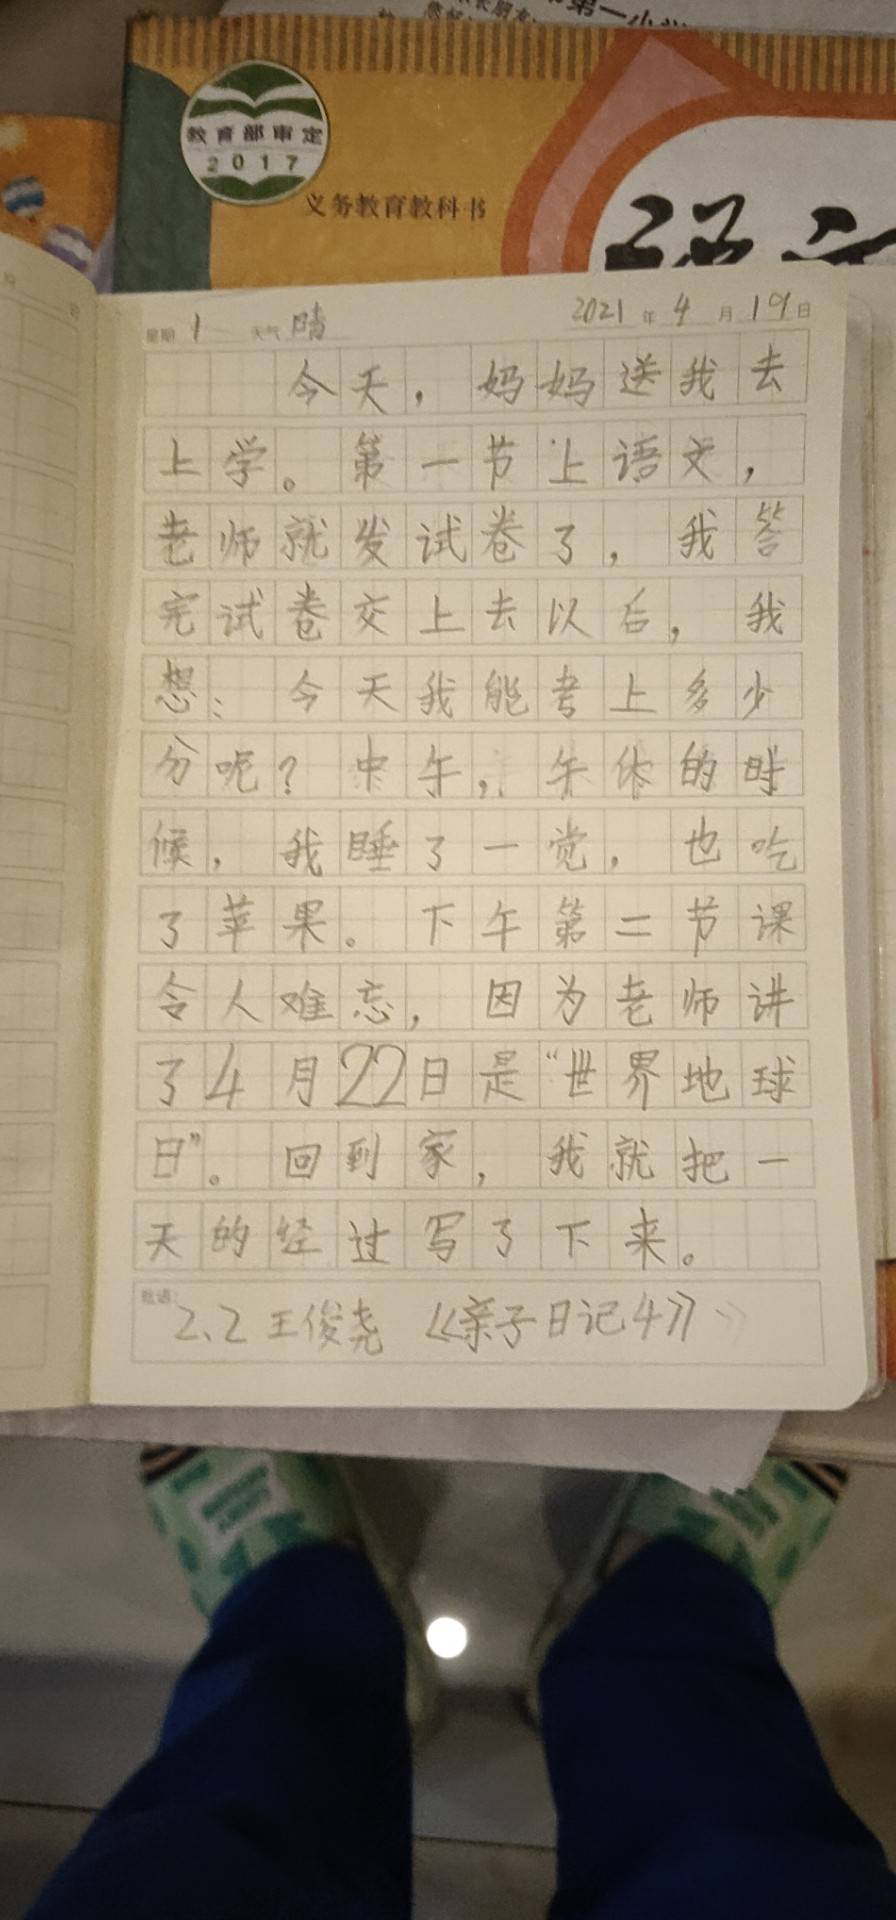 第一小
教育部审定
2017
义务教育教科书
语文
星期 1 天气 晴 2021 年 4 月 19 日
今天，妈妈送我去
上学。第一节上语文，
老师就发试卷了，我答
完试卷交上去以后，我
想：今天我能考上多少
分呢？中午，午休的时
候，我睡了一觉，也吃
了苹果。下午第二节课
令人难忘，因为老师讲
了4月22日是“世界地球
日”。回到家，我就把一
天的经过写了下来。
批语：2.2 王俊尧 《亲子日记4》